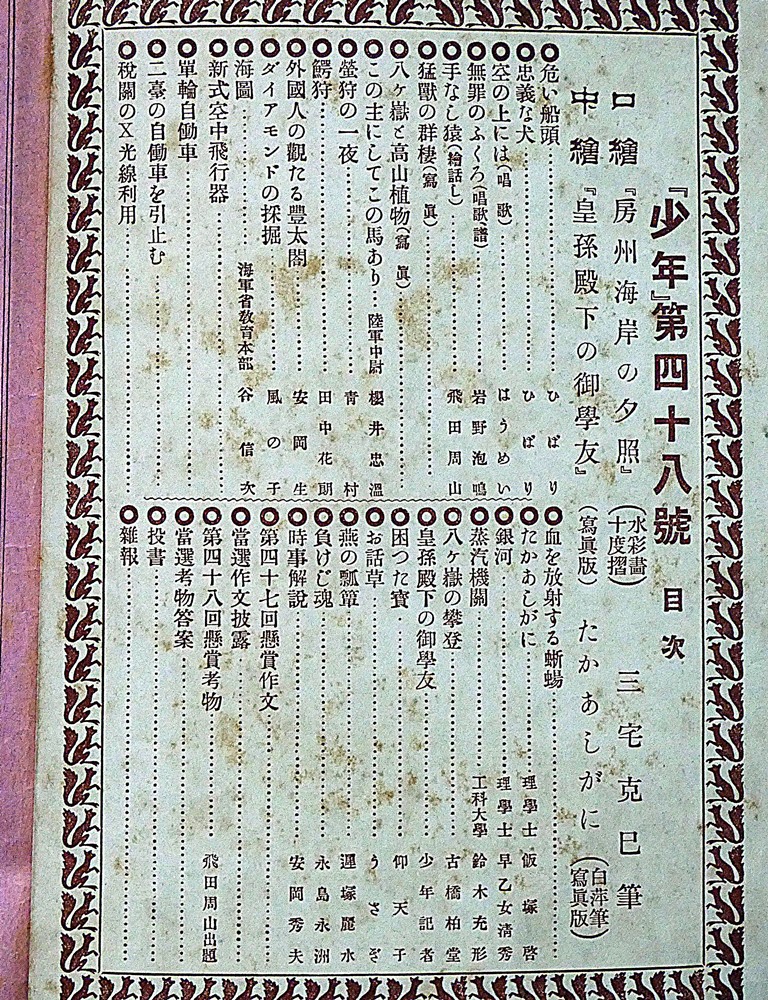 『少年』第四十八號 目次
口繪『房州海岸の夕照』(水彩畫十度摺) 三宅克巳筆
中繪『皇孫殿下の御學友』(寫眞版) たかあしがに(白萍筆寫眞版)
危い船頭 ひばり
忠義な犬 ひばり
空の上には(唱歌) はうめい
無罪のふくろ(唱歌譜) 岩野泡鳴
手なし猿(繪話し) 飛田周山
猛獸の群棲(寫眞)
八ヶ嶽と高山植物(寫眞)
この主にしてこの馬あり 陸軍中尉 櫻井忠溫
螢狩の一夜 靑村
鰐狩 田中花朗
外國人の觀たる豐太閤 安岡生
ダイアモンドの採掘 風の子
海圖 海軍省敎育本部 谷信次
新式空中飛行器
單輪自働車
二臺の自働車を引止む
稅關のX光線利用
血を放射する蜥蜴
たかあしがに 理學士 飯塚啓
銀河 理學士 早乙女淸秀
蒸汽機關 工科大學 鈴木充形
八ヶ嶽の攀登 古橋柏堂
皇孫殿下の御學友 少年記者
困つた寳 仰天子
お話草 うさぎ
燕の瓢簞 遲塚麗水
負けじ魂 永島永洲
時事解說 安岡秀夫
第四十七回懸賞作文
當選作文披露
第四十八回懸賞考物 飛田周山出題
當選考物答案
投書
雜報